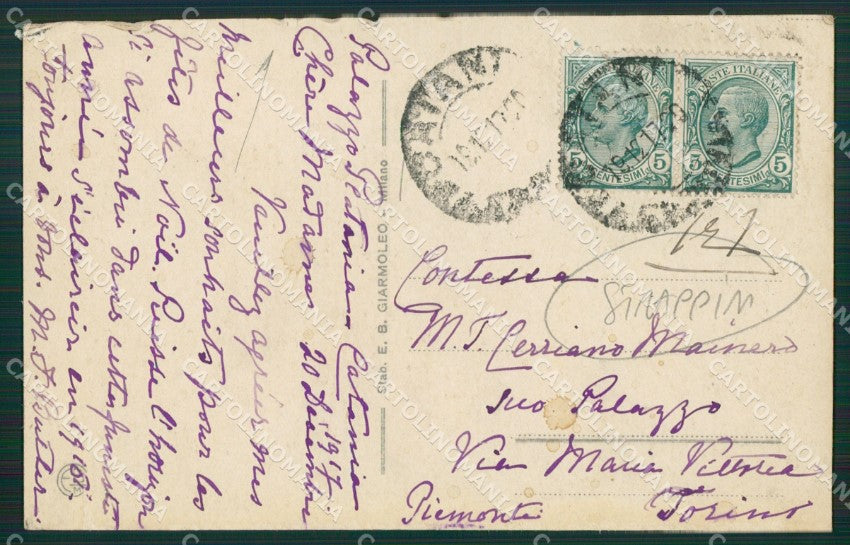 Palazzo Platania - Catania
1917
Chère Madame 20 Decembre
Veuillez agréer mes
meilleurs souhaits pour les
fêtes de Noël. Puisse l'horizon
si assombri dans cette
année s'éclaircir en 1918.
Toujours à vous.
Stab. E. B. GIARMOLEO. - Milano
CATANIA
POSTE ITALIANE
5 CENTESIMI 5
5 CENTESIMI 5
Contessa
M. T. Cerriano Mainero
Suo Palazzo
Via Maria Vittoria
Torino
Piemonte
CARTOLINOMANIA